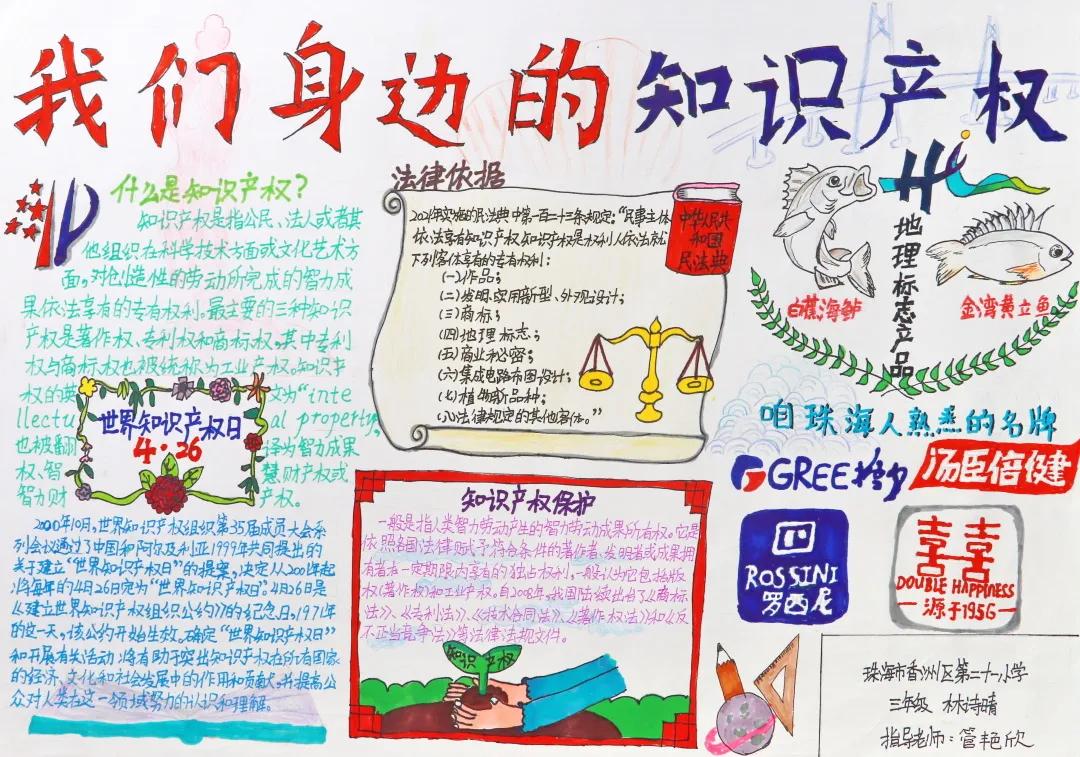 我们身边的知识产权
IP
什么是知识产权?
知识产权是指公民、法人或者其
他组织在科学技术方面或文化艺术方
面,对创造性的劳动所完成的智力成
果依法享有的专有权利。最主要的三种知识
产权是著作权、专利权和商标权,其中专利
权与商标权也被统称为工业产权。知识产
权的英文为“inte
llectual property”,
也被翻译为智力成果
权、智慧财产权或
智力财产权。
世界知识产权日
4·26
2000年10月,世界知识产权组织第35届成员大会系
列会议通过了中国和阿尔及利亚1999年共同提出的
关于建立“世界知识产权日”的提案,决定从2001年起
将每年的4月26日定为“世界知识产权日”。4月26日是
《建立世界知识产权组织公约》的纪念日,1971年
的这一天,该公约开始生效。确定“世界知识产权日”
和开展有关活动将有助于突出知识产权在所有国家
的经济、文化和社会发展中的作用和贡献,并提高公
众对人类在这一领域努力的认识和理解。
法律依据
2021年实施的民法典中第一百二十三条规定:“民事主体
依法享有知识产权。知识产权是权利人依法就
下列客体享有的专有权利:
(一)作品;
(二)发明、实用新型、外观设计;
(三)商标;
(四)地理标志;
(五)商业秘密;
(六)集成电路布图设计;
(七)植物新品种;
(八)法律规定的其他客体。”
中华人民共
和国
民法典
知识产权保护
一般是指人类智力劳动产生的智力劳动成果所有权。它是
依照各国法律赋予符合条件的著作者、发明者或成果拥
有者在一定期限内享有的独占权利,一般认为它包括版
权(著作权)和工业产权。自2008年,我国陆续出台了《商标
法》、《专利法》、《技术合同法》、《著作权法》和《反
不正当竞争法》等法律法规文件。
知识产权
Hi
地理标志产品
白蕉海鲈
金湾黄立鱼
咱珠海人熟悉的名牌
GREE格力
汤臣倍健
ROSSINI
罗西尼
囍
DOUBLE HAPPINESS
源于1956
珠海市香洲区第二十一小学
三年级 林诗晴
指导老师:管艳欣